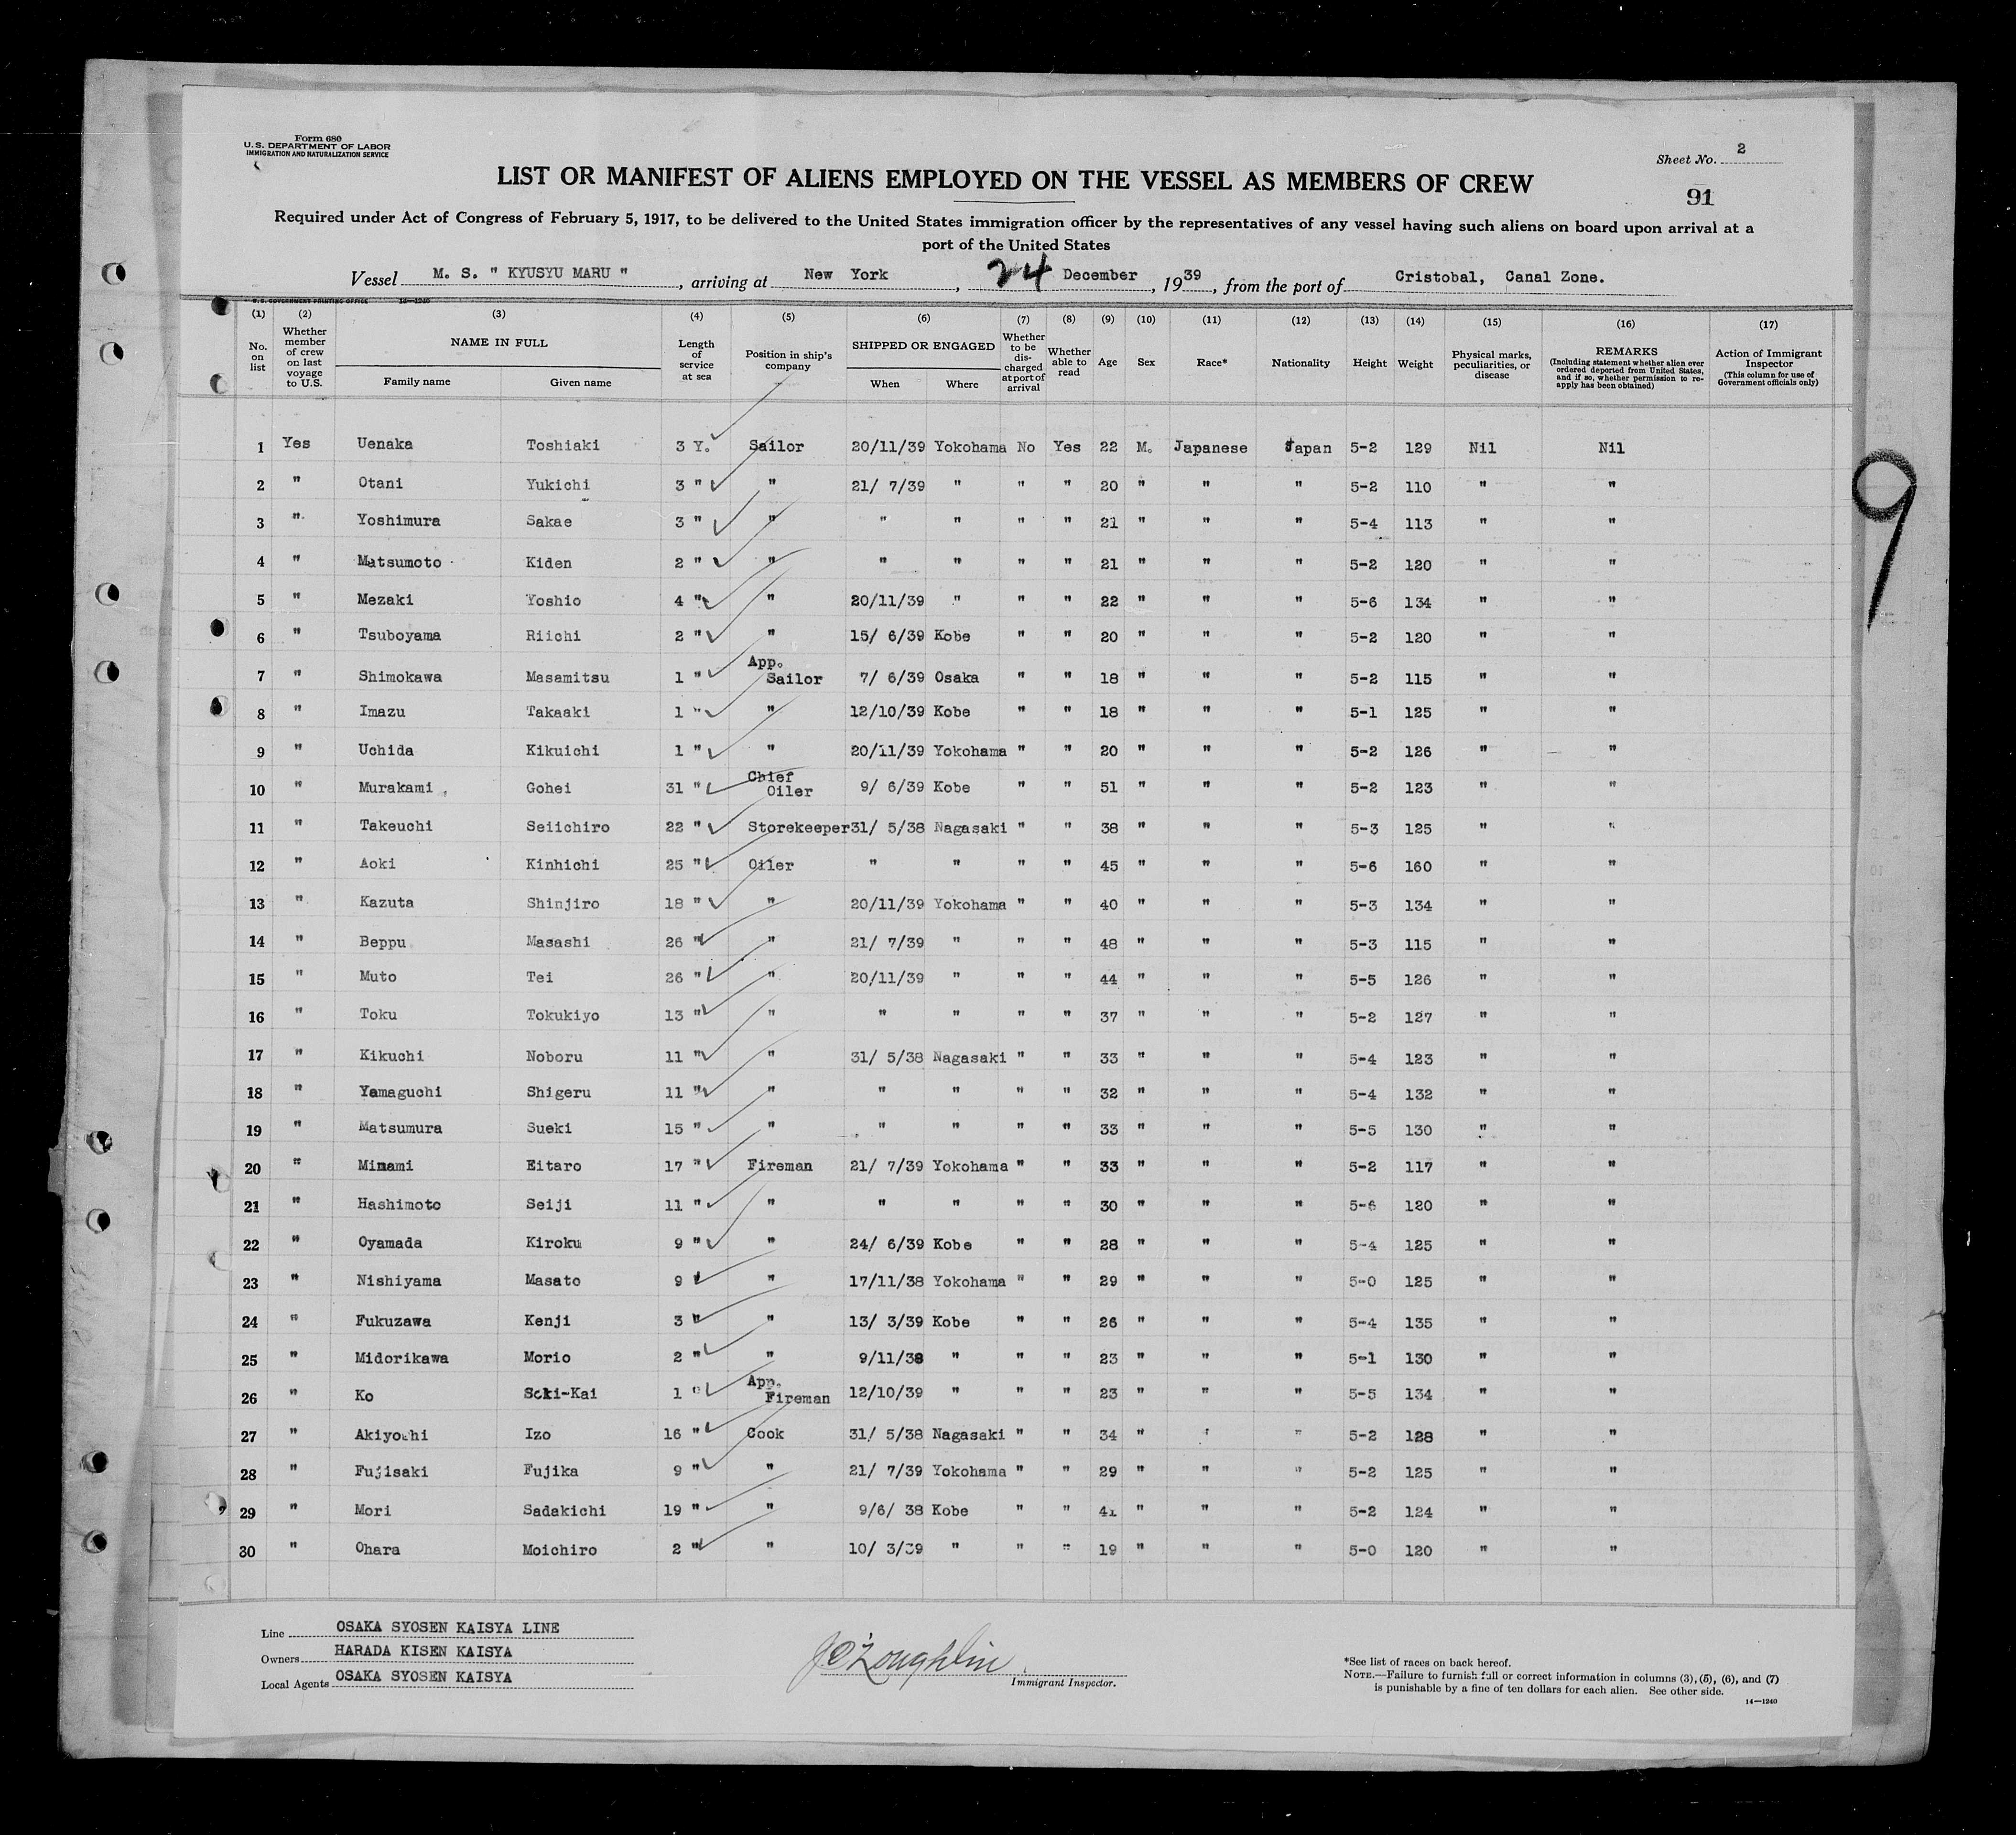 Form 680
U. S. DEPARTMENT OF LABOR
IMMIGRATION AND NATURALIZATION SERVICE
Sheet No. 2
91
LIST OR MANIFEST OF ALIENS EMPLOYED ON THE VESSEL AS MEMBERS OF CREW
Required under Act of Congress of February 5, 1917, to be delivered to the United States immigration officer by the representatives of any vessel having such aliens on board upon arrival at a
port of the United States
Vessel M. S. " KYUSYU MARU ", arriving at New York, 24 December, 1939, from the port of Cristobal, Canal Zone.
U. S. GOVERNMENT PRINTING OFFICE 14—1240
(1) No. on list (2) Whether member of crew on last voyage to U.S. (3) NAME IN FULL Family name Given name (4) Length of service at sea (5) Position in ship's company (6) SHIPPED OR ENGAGED When Where (7) Whether to be discharged at port of arrival (8) Whether able to read (9) Age (10) Sex (11) Race* (12) Nationality (13) Height (14) Weight (15) Physical marks, peculiarities, or disease (16) REMARKS (Including statement whether alien ever ordered deported from United States, and if so, whether permission to re-apply has been obtained) (17) Action of Immigrant Inspector (This column for use of Government officials only)
1 Yes Uenaka Toshiaki 3 Y. Sailor 20/11/39 Yokohama No Yes 22 M. Japanese Japan 5-2 129 Nil Nil
2 " Otani Yukichi 3 " " 21/ 7/39 " " " 20 " " " 5-2 110 " "
3 " Yoshimura Sakae 3 " " " " " " 21 " " " 5-4 113 " "
4 " Matsumoto Kiden 2 " " " " " " 21 " " " 5-2 120 " "
5 " Mezaki Yoshio 4 " " 20/11/39 " " " 22 " " " 5-6 134 " "
6 " Tsuboyama Riichi 2 " " 15/ 6/39 Kobe " " 20 " " " 5-2 120 " "
7 " Shimokawa Masamitsu 1 " App. Sailor 7/ 6/39 Osaka " " 18 " " " 5-2 115 " "
8 " Imazu Takaaki 1 " " 12/10/39 Kobe " " 18 " " " 5-1 125 " "
9 " Uchida Kikuichi 1 " " 20/11/39 Yokohama " " 20 " " " 5-2 126 " "
10 " Murakami Gohei 31 " Chief Oiler 9/ 6/39 Kobe " " 51 " " " 5-2 123 " "
11 " Takeuchi Seiichiro 22 " Storekeeper 31/ 5/38 Nagasaki " " 38 " " " 5-3 125 " "
12 " Aoki Kinhichi 25 " Oiler " " " " 45 " " " 5-6 160 " "
13 " Kazuta Shinjiro 18 " " 20/11/39 Yokohama " " 40 " " " 5-3 134 " "
14 " Beppu Masashi 26 " " 21/ 7/39 " " " 48 " " " 5-3 115 " "
15 " Muto Tei 26 " " 20/11/39 " " " 44 " " " 5-5 126 " "
16 " Toku Tokukiyo 13 " " " " " " 37 " " " 5-2 127 " "
17 " Kikuchi Noboru 11 " " 31/ 5/38 Nagasaki " " 33 " " " 5-4 123 " "
18 " Yamaguchi Shigeru 11 " " " " " " 32 " " " 5-4 132 " "
19 " Matsumura Sueki 15 " " " " " " 33 " " " 5-5 130 " "
20 " Minami Eitaro 17 " Fireman 21/ 7/39 Yokohama " " 33 " " " 5-2 117 " "
21 " Hashimoto Seiji 11 " " " " " " 30 " " " 5-6 120 " "
22 " Oyamada Kiroku 9 " " 24/ 6/39 Kobe " " 28 " " " 5-4 125 " "
23 " Nishiyama Masato 9 " " 17/11/38 Yokohama " " 29 " " " 5-0 125 " "
24 " Fukuzawa Kenji 3 " " 13/ 3/39 Kobe " " 26 " " " 5-4 135 " "
25 " Midorikawa Morio 2 " " 9/11/38 " " " 23 " " " 5-1 130 " "
26 " Ko Soki-Kai 1 " App. Fireman 12/10/39 " " " 23 " " " 5-5 134 " "
27 " Akiyoshi Izo 16 " Cook 31/ 5/38 Nagasaki " " 34 " " " 5-2 128 " "
28 " Fujisaki Fujika 9 " " 21/ 7/39 Yokohama " " 29 " " " 5-2 125 " "
29 " Mori Sadakichi 19 " " 9/6/ 38 Kobe " " 41 " " " 5-2 124 " "
30 " Ohara Moichiro 2 " " 10/ 3/39 " " " 19 " " " 5-0 120 " "
9
Line OSAKA SYOSEN KAISYA LINE
Owners HARADA KISEN KAISYA
Local Agents OSAKA SYOSEN KAISYA
J O'Loughlin
Immigrant Inspector.
*See list of races on back hereof.
NOTE.—Failure to furnish full or correct information in columns (3), (5), (6), and (7)
is punishable by a fine of ten dollars for each alien. See other side.
14—1240